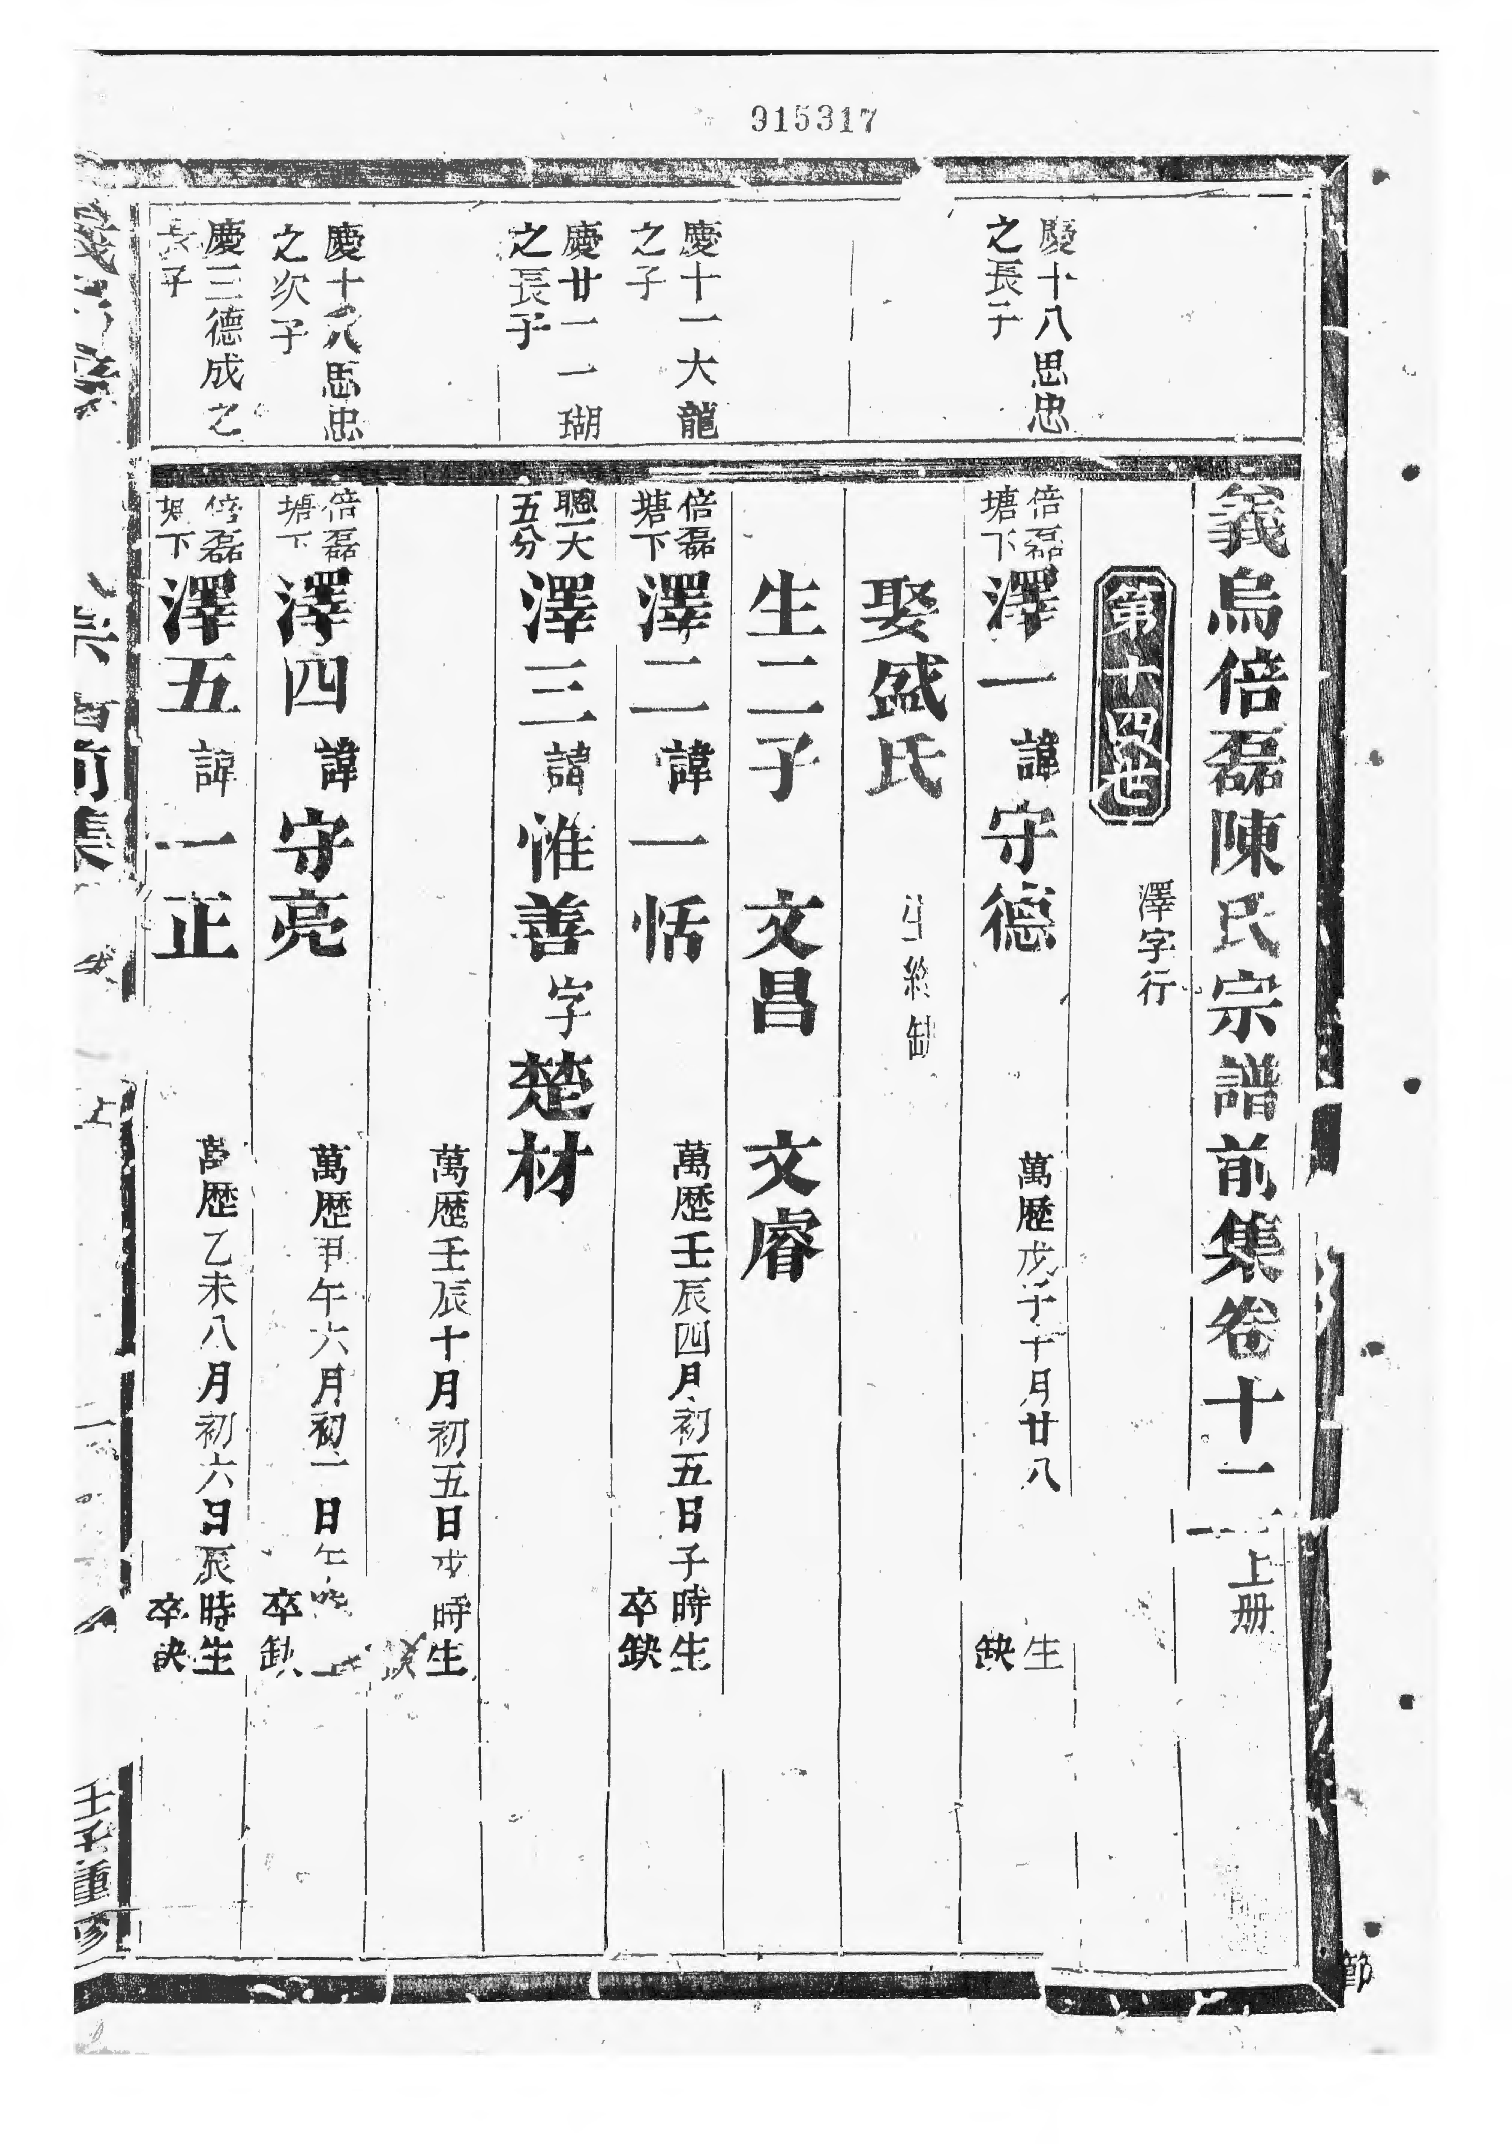 915317
義烏倍磊陳氏宗譜前集卷十二上册
第十四世
澤字行
慶十八思忠
之長子
倍磊
塘下
澤一諱守德
萬歷戊子十月廿八
生
缺
娶盛氏
生終缺
生二子 文昌 文睿
慶十一大龍
之子
倍磊
塘下
澤二諱一恬
萬歷壬辰四月初五日子時生
卒缺
慶廿一一瑚
之長子
聰一大
五分
澤三諱惟善字楚材
萬歷壬辰十月初五日戌時生
缺
慶十八思忠
之次子
倍磊
塘下
澤四諱守亮
萬歷甲午六月初一日午時生
卒缺
慶三德成之
長子
倍磊
塘下
澤五諱一正
萬歷乙未八月初六日辰時生
卒缺
前集
上
壬子重修
節